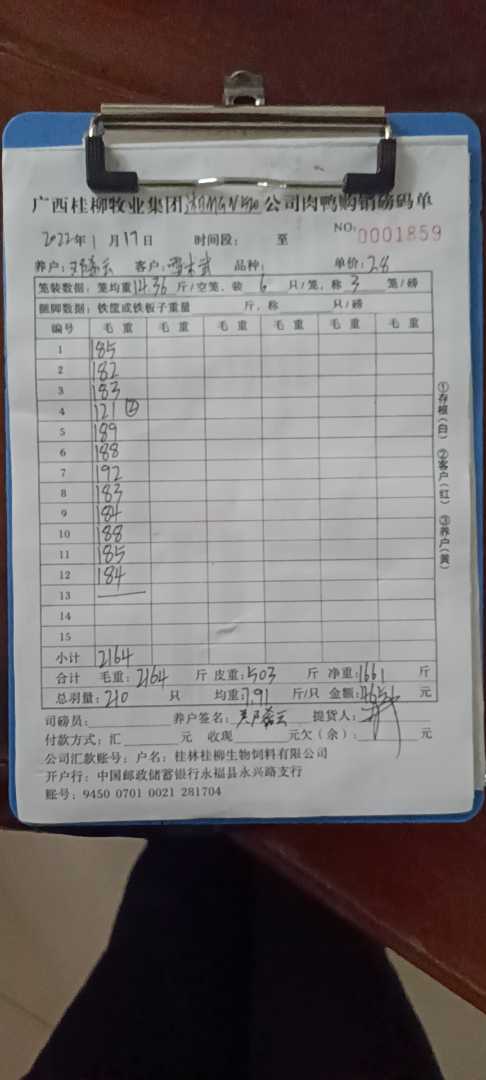 广西桂柳牧业集团 公司肉鸭购销磅码单
2022年1月17日 时间段: 至 NO:0001859
养户: 客户: 品种: 单价:2.8
笼装数据:笼均重14.36斤/空笼、装6只/笼,称3笼/磅
捆脚数据:铁筐或铁板子重量 斤,称 只/磅
编号 毛重 毛重 毛重 毛重 毛重 毛重
1 185
2 182
3 183
4 121 ②
5 189
6 188
7 192
8 183
9 184
10 188
11 185
12 184
13
14
15
小计 2164
合计 毛重:2164斤 皮重:503斤 净重:1661斤
总羽量:210只 均重:7.91斤/只 金额:4654元
司磅员: 养户签名: 提货人:
付款方式:汇 元 收现 元欠(余): 元
公司汇款账号:户名:桂林桂柳生物饲料有限公司
开户行:中国邮政储蓄银行永福县永兴路支行
账号:9450 0701 0021 281704
①存根(白) ②客户(红) ③养户(黄)